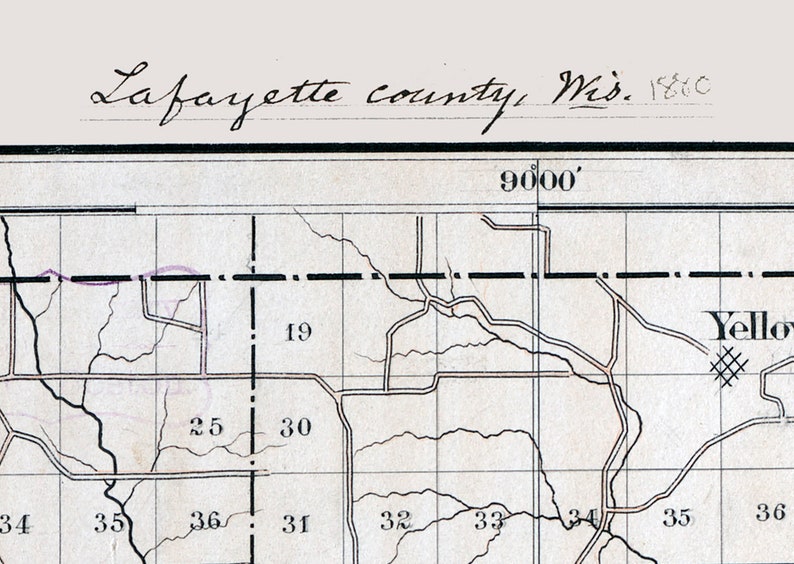 Lafayette county, Wis. 1880
90°00'
19
Yellow
25 30
34 35 36 31 32 33 34 35 36